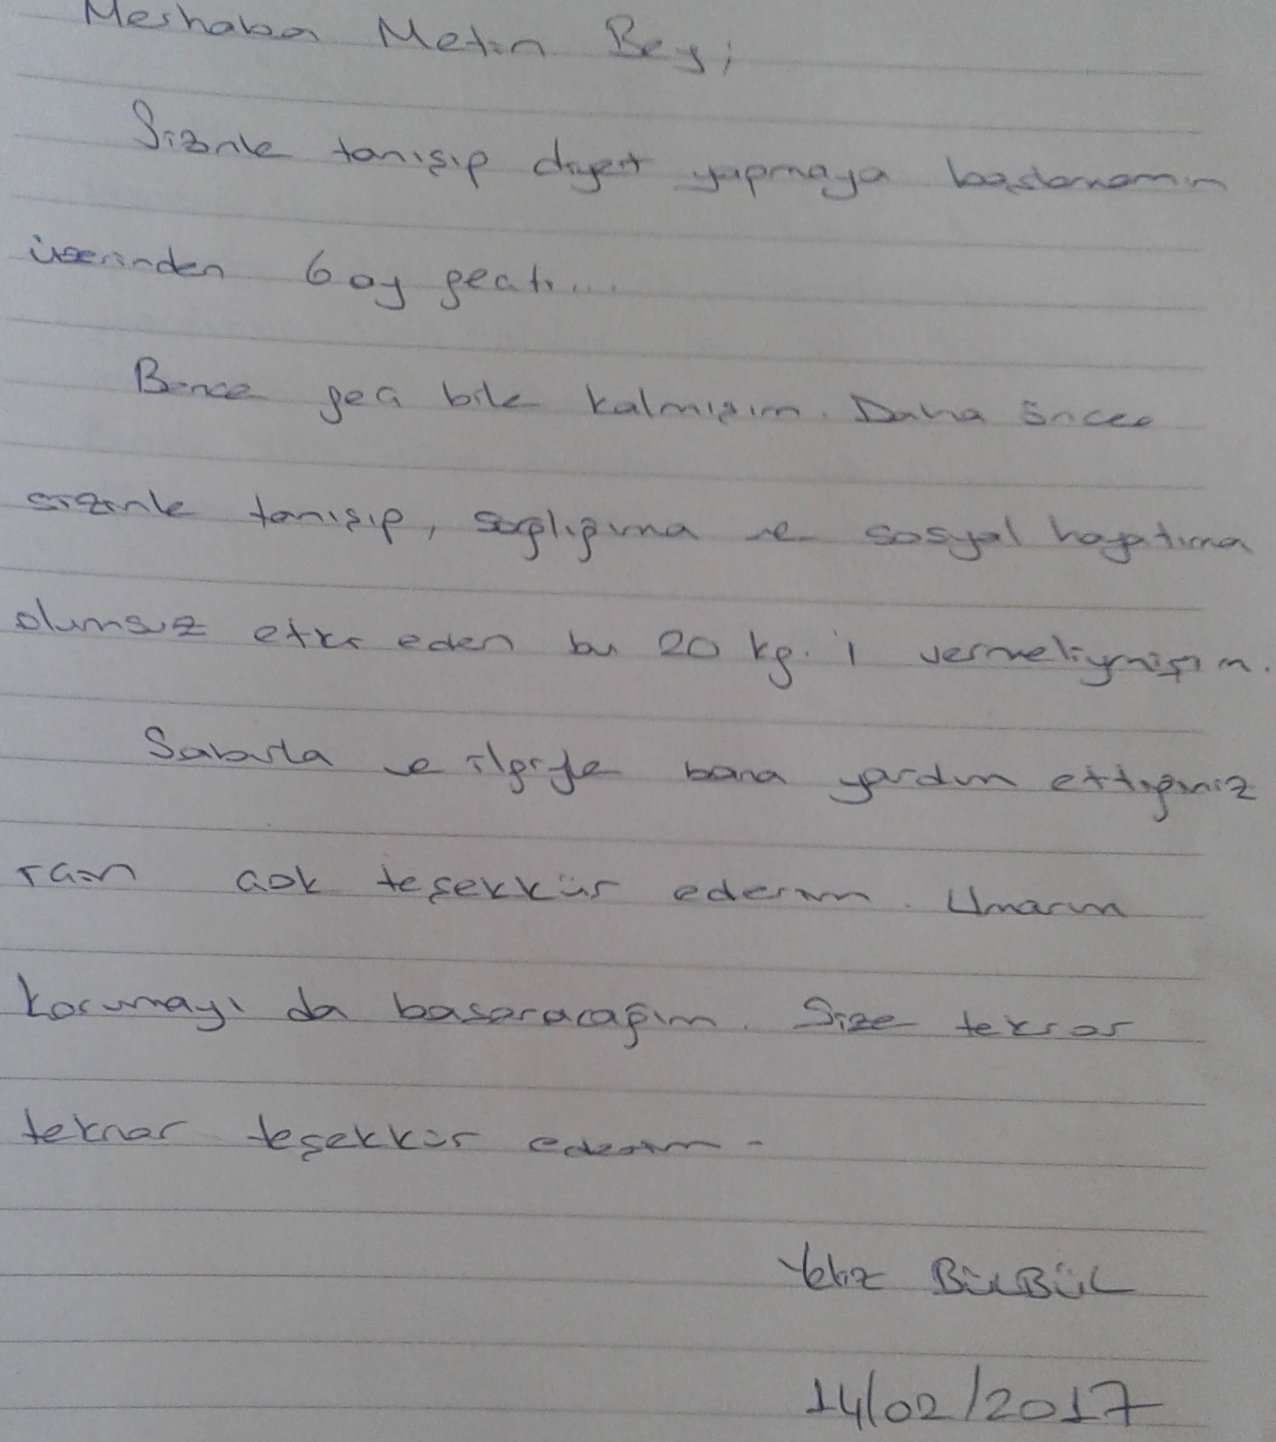 Merhaba Metin Bey;
Sizinle tanışıp diyet yapmaya başlamamın
üzerinden 6 ay geçti...
Bence geç bile kalmışım. Daha önce
sizinle tanışıp, sağlığıma ve sosyal hayatıma
olumsuz etki eden bu 20 kg.'ı vermeliymişim.
Sabırla ve ilgiyle bana yardım ettiğiniz
için çok teşekkür ederim. Umarım
korumayı da başaracağım. Size tekrar
teknar teşekkür ederim.
Yeliz BÜLBÜL
14/02/2017